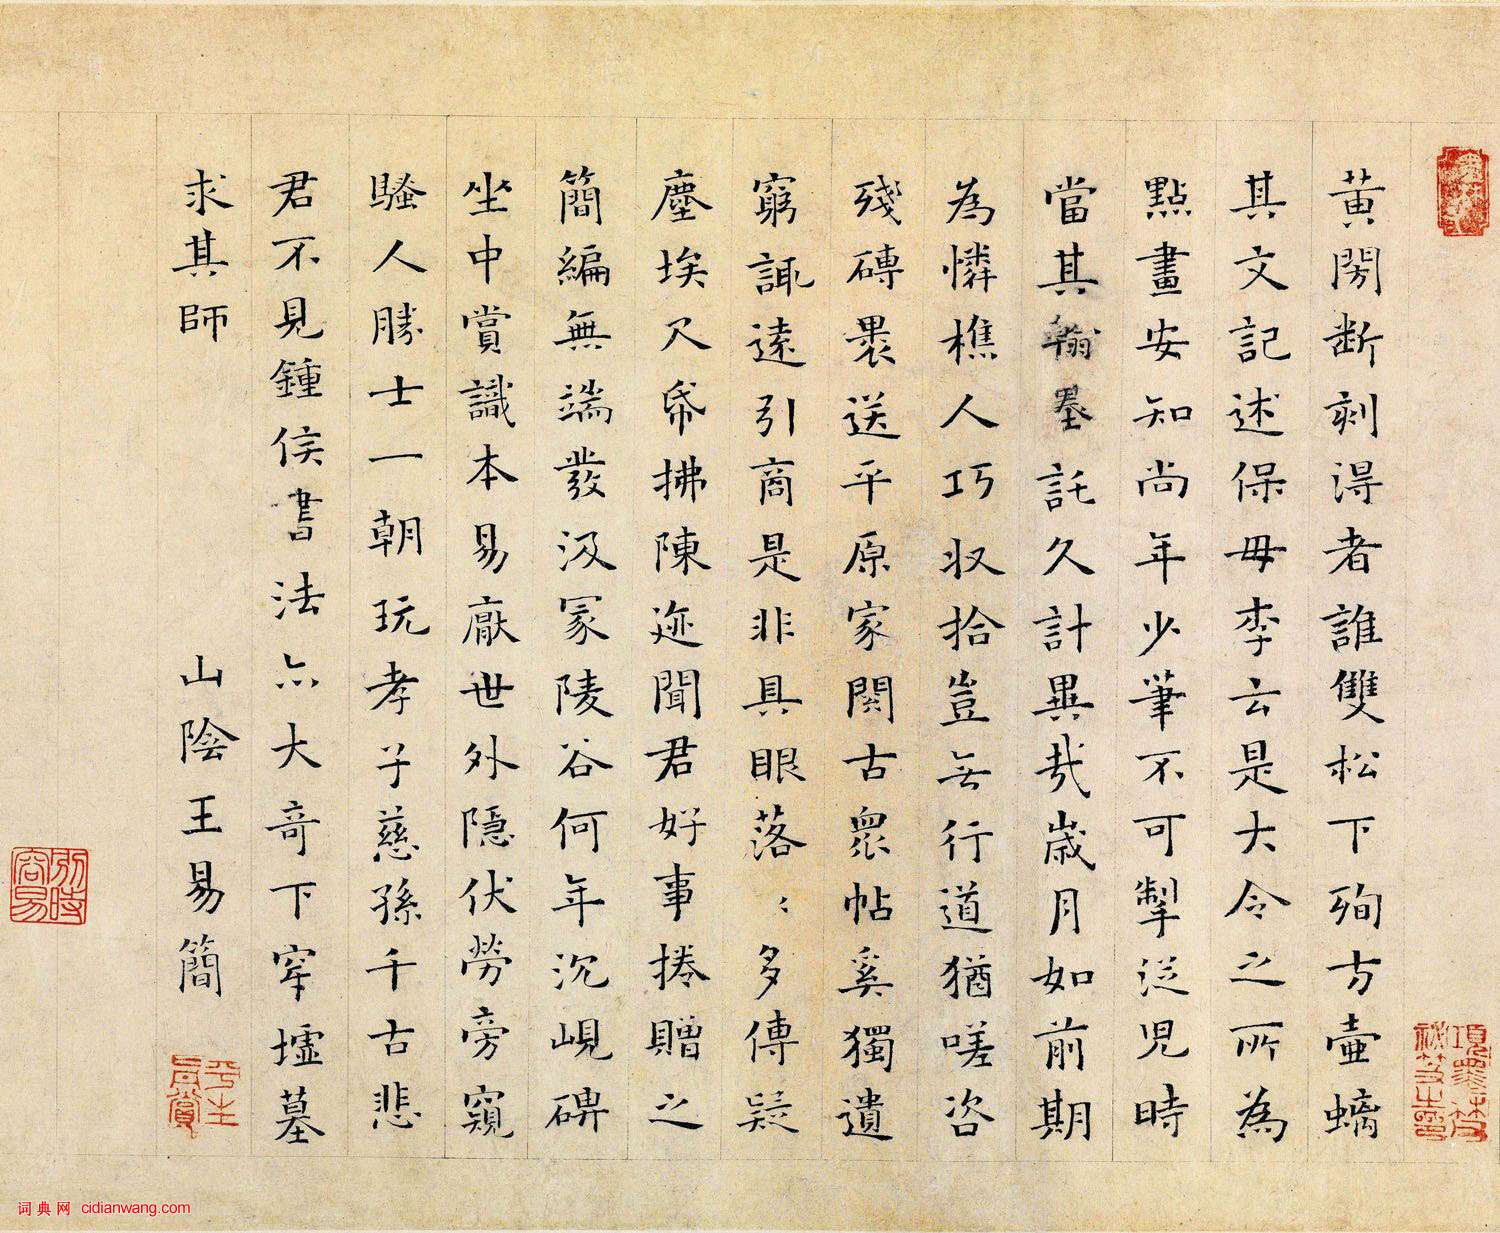 黄閍断刻得者誰雙松下殉方壷螭
其文記述保母李云是大令之所為
點畫安知尚年少筆不可掣從児時
當其翰墨託久計異哉嵗月如前期
為憐樵人巧收拾豈無行道猶嗟咨
殘磚褁送平原家閱古衆帖奚獨遺
窮諏逺引商是非具眼落〻多傳疑
塵埃尺帋拂陳迹聞君好事捲贈之
簡編無端發汲冢陵谷何年沉峴碑
坐中賞識本易厭世外隠伏勞旁窺
騷人勝士一朝玩孝子慈孫千古悲
君不見鍾侯書法亦大奇下穿墟墓
求其師
山陰王易簡
平生真賞
別時容易
词典网 cidianwang.com